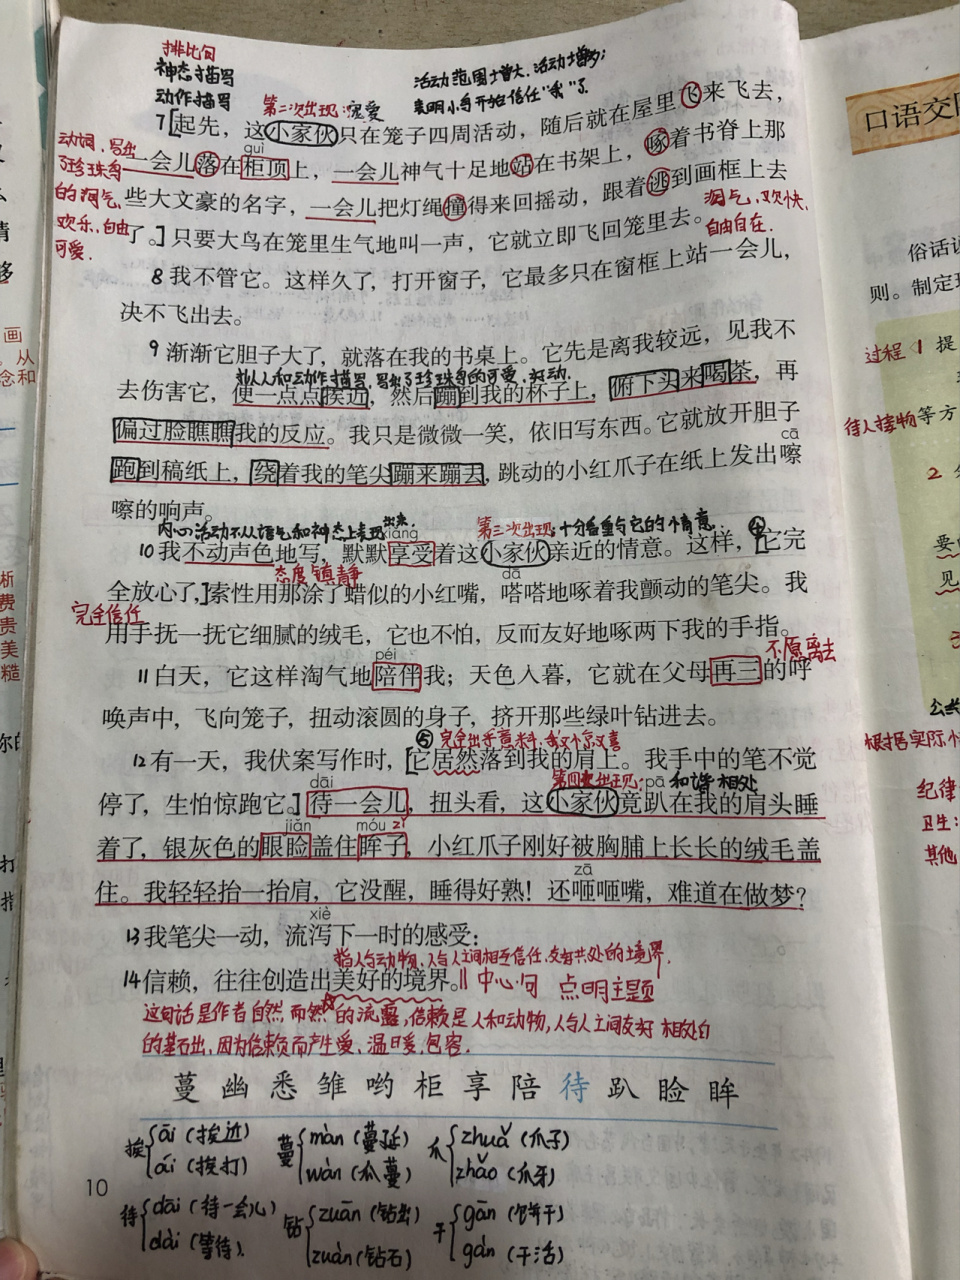 排比句
神态描写
动作描写
活动范围增大、活动增多;
表明小鸟开始信任“我”了
第二次出现:宠爱
7[起先，这小家伙只在笼子四周活动，随后就在屋里飞来飞去，
guì
一会儿落在柜顶上，一会儿神气十足地站在书架上，啄着书脊上那
些大文豪的名字，一会儿把灯绳撞得来回摇动，跟着逃到画框上去
了。]只要大鸟在笼里生气地叫一声，它就立即飞回笼里去。
动词，写出
了珍珠鸟
的淘气
欢乐，自由
可爱.
淘气，欢快，
自由自在.
8我不管它。这样久了，打开窗子，它最多只在窗框上站一会儿，
决不飞出去。
9渐渐它胆子大了，就落在我的书桌上。它先是离我较远，见我不
拟人和动作描写，写出了珍珠鸟的可爱，好动.
去伤害它，便一点点挨近，然后蹦到我的杯子上，俯下头来喝茶，再
偏过脸瞧瞧我的反应。我只是微微一笑，依旧写东西。它就放开胆子
cā
跑到稿纸上，绕着我的笔尖蹦来蹦去，跳动的小红爪子在纸上发出嚓
嚓的响声。
内心活动不从语气和神态上表现出来.
第三次出现:十分看重与它的情意.
④
xiǎng
10我不动声色地写，默默享受着这小家伙亲近的情意。这样，[它完
态度镇静
dā
全放心了，]索性用那涂了蜡似的小红嘴，嗒嗒地啄着我颤动的笔尖。我
完全信任
用手抚一抚它细腻的绒毛，它也不怕，反而友好地啄两下我的手指。
péi
不愿离去
11白天，它这样淘气地陪伴我；天色入暮，它就在父母再三的呼
唤声中，飞向笼子，扭动滚圆的身子，挤开那些绿叶钻进去。
⑤完全出乎意料、我又惊又喜
12有一天，我伏案写作时，[它居然落到我的肩上。我手中的笔不觉
dāi
第四次出现:
pā
和谐相处
停了，生怕惊跑它。]待一会儿，扭头看，这小家伙竟趴在我的肩头睡
jiǎn
móu zi
着了，银灰色的眼睑盖住眸子，小红爪子刚好被胸脯上长长的绒毛盖
zā
住。我轻轻抬一抬肩，它没醒，睡得好熟！还咂咂嘴，难道在做梦？
xiè
13我笔尖一动，流泻下一时的感受：
指人与动物，人与人之间相互信任，友好共处的境界.
14信赖，往往创造出美好的境界。‖中心句 点明主题
这句话是作者自然而然的流露，信赖是人和动物，人与人之间友好相处的
的基石出，因为信赖而产生爱、温暖、包容.
蔓幽悉雏哟柜享陪待趴睑眸
挨{āi(挨近)
ái(挨打)
蔓{màn(蔓延)
wàn(瓜蔓)
爪{zhuǎ(爪子)
zhǎo(爪牙)
待{dāi(待一会儿)
dài(等待).
钻{zuān(钻出)
zuàn(钻石)
干{gān(饼干)
gàn(干活)
10
口语交
俗话说
则。制定
过程 1 提
待人接物等方
2
要
见
根据实际
纪律
卫生:
其他